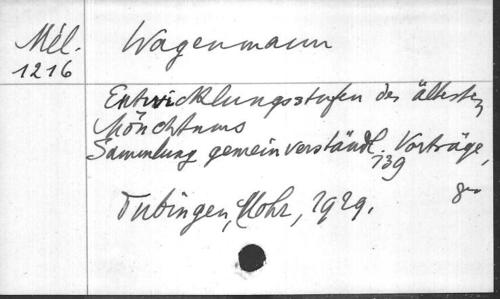 Mél.
1216
Wagenmann
Entwicklungsstufen des ältesten
Mönchtums
Sammlung gemeinverständl. Vorträge,
139
Tubingen, Mohr, 1929.
8º